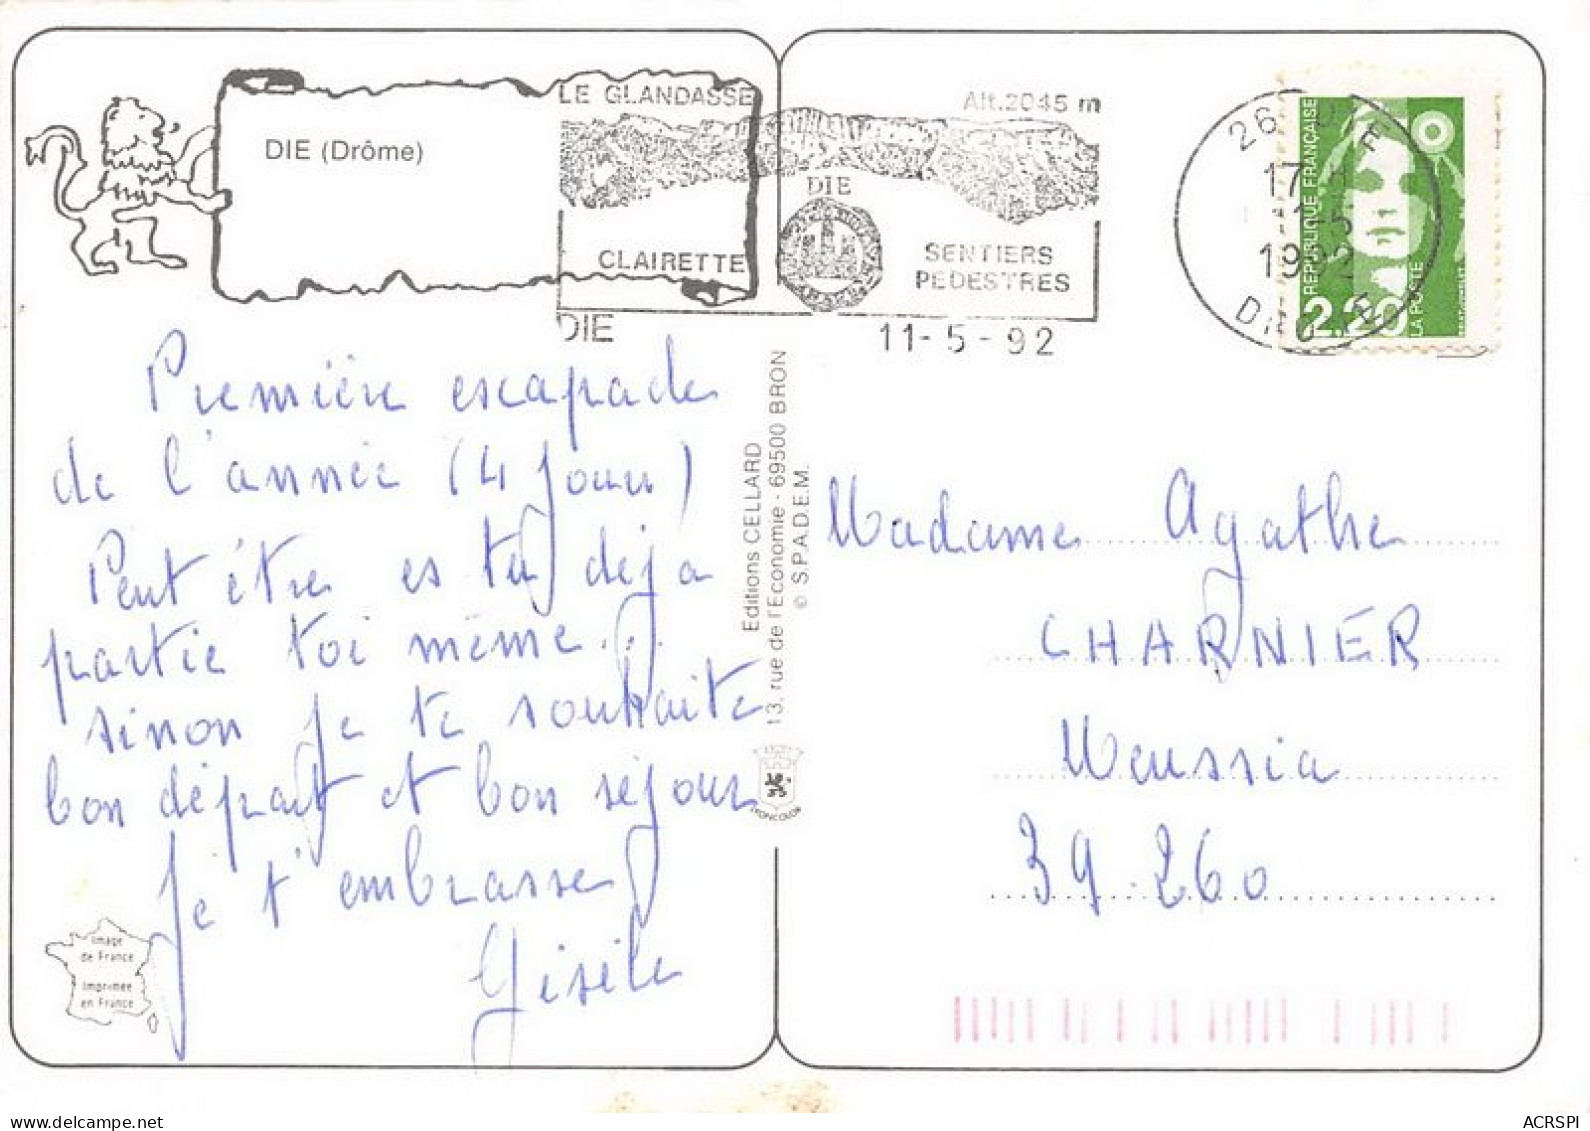 DIE (Drôme)
LE GLANDASSE Alt.2045 m
DIE
CLAIRETTE
SENTIERS
PEDESTRES
DIE 11-5-92
26 DIE
17 H
11-5
1992
REPUBLIQUE FRANÇAISE
2,20
LA POSTE
Première escapade
de l'année (4 jours)
Peut être es tu déjà
partie toi même...
sinon je te souhaite
bon départ et bon séjour
Je t'embrasse
Gisèle
Editions CELLARD
13, rue de l'Economie - 69500 BRON
© S.P.A.D.E.M.
Madame Agathe
CHARNIER
Meussia
39.260
Image
de France
Imprimée
en France
www.delcampe.net
ACRSPI